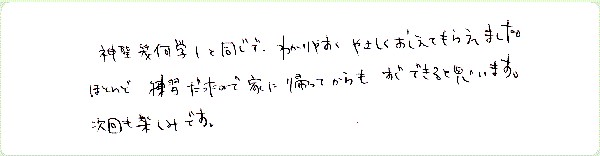 神聖幾何学1と同じで、わかりやすく やさしくおしえてもらえました。
ほとんど 練習だったので 家に帰ってからも すぐできると思います。
次回も楽しみです。